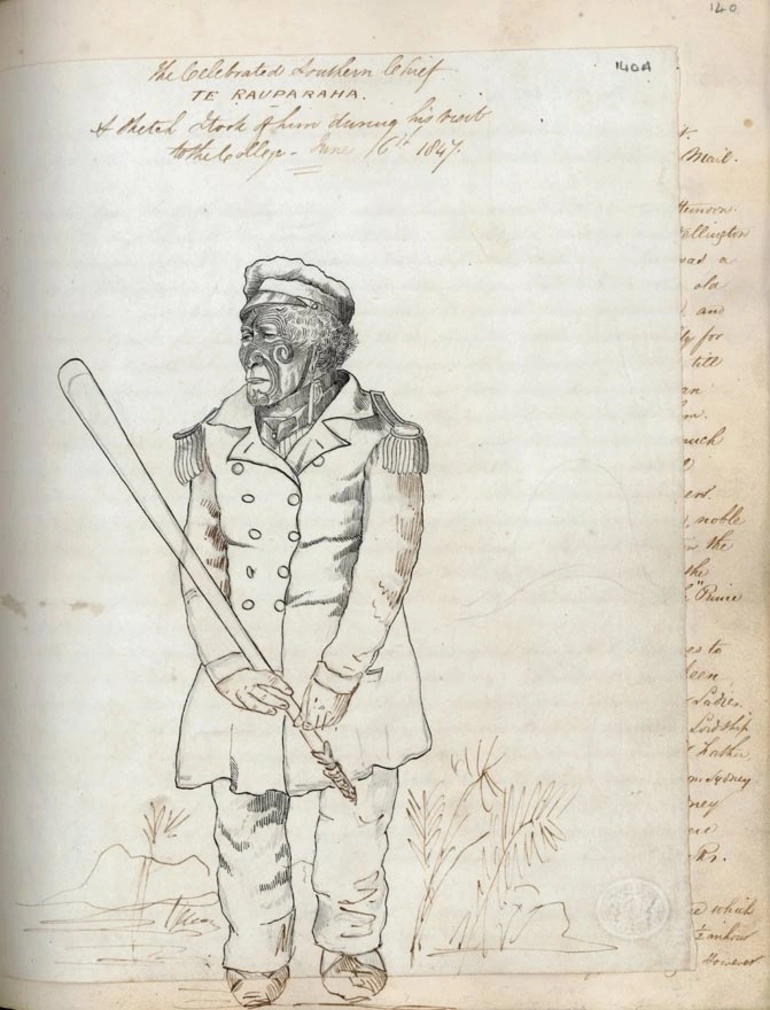 140
140A
The Celebrated Southern Chief
TE RAUPARAHA.
A Sketch I took of him during his visit
to the College - June 16th 1847.
Mail.
ternoon.
ellington
was a
old
and
ly for
till
an
m.
much
en.
noble
in the
the
"Prince
es to
been
Ladies.
Lordship
om Sydney
ney
ere
Rs.
e which
However